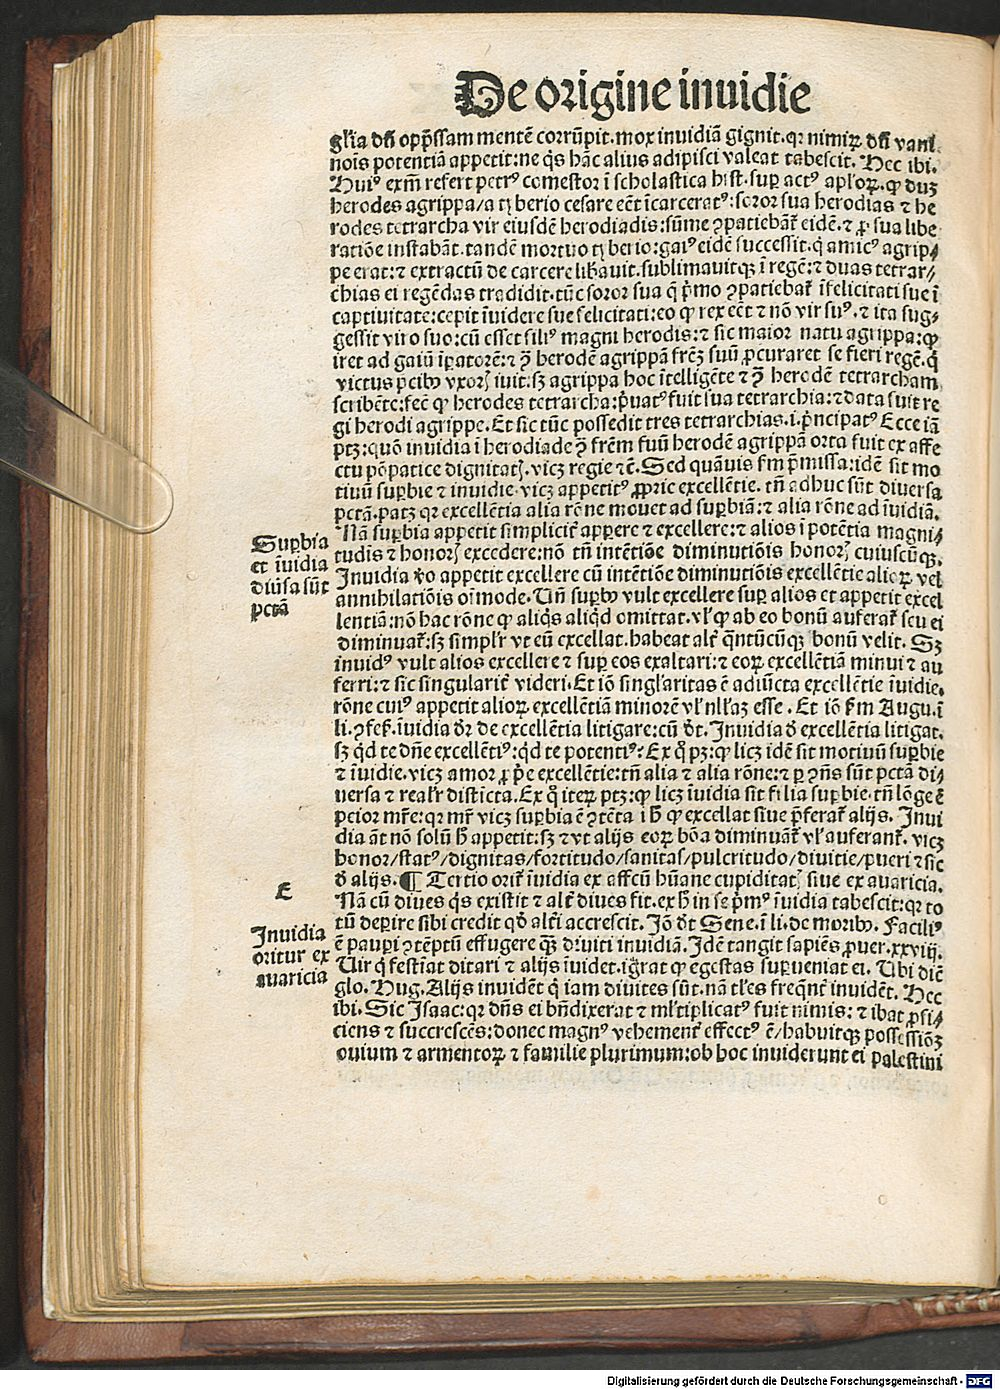 De origine inuidie
gl'ia dñ opp̃ssam mentē corrūpit. mox inuidiā gignit. qr nimiꝝ dñ vani
nois potentiā appetit: ne q̄s hāc alius adipisci valeat tabescit. Hec ibi.
Huiꝰ exm̄ refert petrꝰ comestor ī scholastica hist. suꝑ actꝰ apl'oꝝ. ꝙ duꝫ
herodes agrippa/a tyberio cesare eēt īcarceratꝰ: soror sua herodias ⁊ he
rodes tetrarcha vir eiusdē herodiadis: sūme ꝯpatiebāt̄ eidē. ⁊ ꝓ sua libe
ratiōe instabāt. tandē mortuo tyberio: gaiꝰ eidē successit. q̇ amicꝰ agrip⸗
pe erat: ⁊ extractū de carcere lib̄auit. sublimauitqꝫ ī regē: ⁊ duas tetrar⸗
chias ei regēdas tradidit. tūc soror sua q̄ p̄mo ꝯpatiebat̄ īfelicitati sue ī
captiuitate: cepit īuidere sue felicitati: eo ꝙ rex eēt ⁊ nō vir suꝰ. ⁊ ita sug⸗
gessit viro suo: cū esset filiꝰ magni herodis: ⁊ sic maior natu agrippa: ꝙ
iret ad gaiū īꝑatorē: ⁊ ꝯ̄ herodē agrippā fr̄eꝫ suū ꝓcuraret se fieri regē. q̇
victus p̄cibꝰ vxorꝭ iuit: sꝫ agrippa hoc ītelligēte ⁊ ꝯ̄ herodē tetrarcham
scribēte: fec̄ ꝙ herodes tetrarcha: p̄uatꝰ fuit sua tetrarchia: ⁊ data fuit re
gi herodi agrippe. Et sic tūc possedit tres tetrarchias. i. p̄ncipatꝰ Ecce iā
ptꝫ: quō inuidia ī herodiade ꝯ̄ fr̄em suū herodē agrippā orta fuit ex affe
ctu p̄op̄atice dignitatꝭ. vicꝫ regie ⁊c̄. Sed quāuis ẜm p̄missa: idē sit mo
tiuū suꝑbie ⁊ inuidie. vicꝫ appetitꝰ ꝓprie excellētie. tn̄ adhuc sūt diuersa
pctā. patꝫ qr excellētia alia rōne mouet ad suꝑbiā: ⁊ alia rōne ad īuidiā.
Nā suꝑbia appetit simplicit̄ appere ⁊ excellere: ⁊ alios ī potētia magni⸗
tudis ⁊ honorꝭ excedere: nō tn̄ intētiōe diminutiōis honorꝭ cuiuscūqꝫ.
Inuidia v̊o appetit excellere cū intētiōe diminutiōis excellētie alioꝝ vel
annihilatiōis oīmode. Un̄ suꝑbꝰ vult excellere suꝑ alios et appetit excel
lentiā: nō hac rōne ꝙ aliq̇s aliq̇d omittat. vl' ꝙ ab eo bonū auferat̄ seu ei
diminuat̄: sꝫ simpl'r vt eū excellat. habeat alt̄ q̄ntūcūqꝫ bonū velit. Sꝫ
inuidꝰ vult alios excellere ⁊ suꝑ eos exaltari: ⁊ eoꝝ excellētiā minui ⁊ au
ferri: ⁊ sic singularit̄ videri. Et iō singl'aritas ē adiūcta excellētie īuidie.
rōne cuiꝰ appetit alioꝝ excellētiā minorē vl' nl'laꝫ esse. Et iō ẜm Augu. ī
li. ꝯfes̄. īuidia dr̄ de excellētia litigare: cū dt̄. Inuidia d̄ excellētia litigat.
sꝫ q̇d te dn̄e excellētiꝰ: q̇d te potentiꝰ? Ex q̊ pꝫ: ꝙ licꝫ idē sit motiuū suꝑbie
⁊ īuidie. vicꝫ amor ꝓp̄e excellētie: tn̄ alia ⁊ alia rōne: ⁊ ꝑ ꝯn̄s sūt pctā di⸗
uersa ⁊ real'r disticta. Ex q̊ iteꝝ ptꝫ: ꝙ licꝫ īuidia sit filia suꝑbie. tn̄ lōge ē
peior mr̄e: qr mr̄ vicꝫ suꝑbia ē ꝯtēta ī h̄ ꝙ excellat siue p̄ferat̄ alijs. Inui
dia āt nō solū h̄ appetit: sꝫ ⁊ vt alijs eoꝝ bōa diminuāt̄ vl' auferant̄. vicꝫ
honor/statꝰ/dignitas/fortitudo/sanitas/pulcritudo/diuitie/pueri ⁊ sic
d̄ alijs. ¶ Tertio orit̄ īuidia ex affcū hūane cupiditatꝭ siue ex auaricia.
Nā cū diues q̇s existit ⁊ alt̄ diues fit. ex h̄ in se p̄mꝰ īuidia tabescit: qr to
tū deꝑire sibi credit qd̄ alt̄i accrescit. Iō dt̄ Sene. ī li. de moribꝰ. Faciliꝰ
ē pauꝑi ꝯtēptū effugere q̄ꝫ diuiti inuidiā. Idē tangit sapiēs ꝓuer. xxviij.
Uir q̇ festīat ditari ⁊ alijs īuidet. ig̊rat ꝙ egestas suꝑueniat ei. Ubi diē
glo. Hug. Alijs inuidēt q̇ iam diuites sūt. nā tl'es freq̄nt̄ inuidēt. Hec
ibi. Sic Isaac: qr dn̄s ei bn̄dixerat ⁊ ml'tiplicatꝰ fuit nimis: ⁊ ibat ꝓfi⸗
ciens ⁊ succrescēs: donec magnꝰ vehement̄ effectꝰ ē/habuitqꝫ possessiōꝫ
ouium ⁊ armentoꝝ ⁊ familie plurimum: ob hoc inuiderunt ei palestini
Suꝑbia
et īuidia
diũsa sūt
pctā
E
Inuidia
oritur ex
auaricia
Digitalisierung gefördert durch die Deutsche Forschungsgemeinschaft - DFG